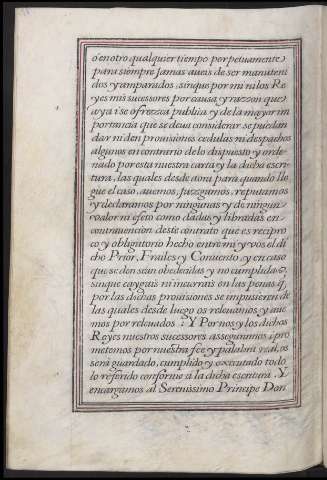 ó en otro qualquier tiempo perpetuamente
para siempre Jamas aueis de ser manuteni
dos y amparados, sin que por mi ni los Re
yes mis sucessores por causa y razon que
aya i se ofrezca publica y de la mayor im
portancia que se deua considerar se puedan
dar ni den prouisiones cedulas ni despachos
algunos en contrario de lo dispuesto y orde
nado por esta nuestra carta y la dicha escri
tura, las quales desde aora para quando lle
gue el caso, auemos, juzgamos, reputamos
y declaramos por ningunas y de ningun
valor ni efeto como dadas y libradas en
contrauencion deste contrato que es recipro
co y obligatorio hecho entre mi y vos el di
cho Prior, Frailes y Conuento, y en caso
que se den sean obedecidas y no cumplidas,
sin que caygais ni incurrais en las penas q̃
por las dichas prouisiones se impusieren de
las quales desde luego os releuamos y aue
mos por releuados. Y Por nos y los dichos
Reyes nuestros sucessores asseguramos i pro
metemos por nuestra fee y palabra real, os
será guardado, cumplido y executado todo
lo referido conforme a la dicha escritura. Y
encargamos al Serenissimo Principe Don